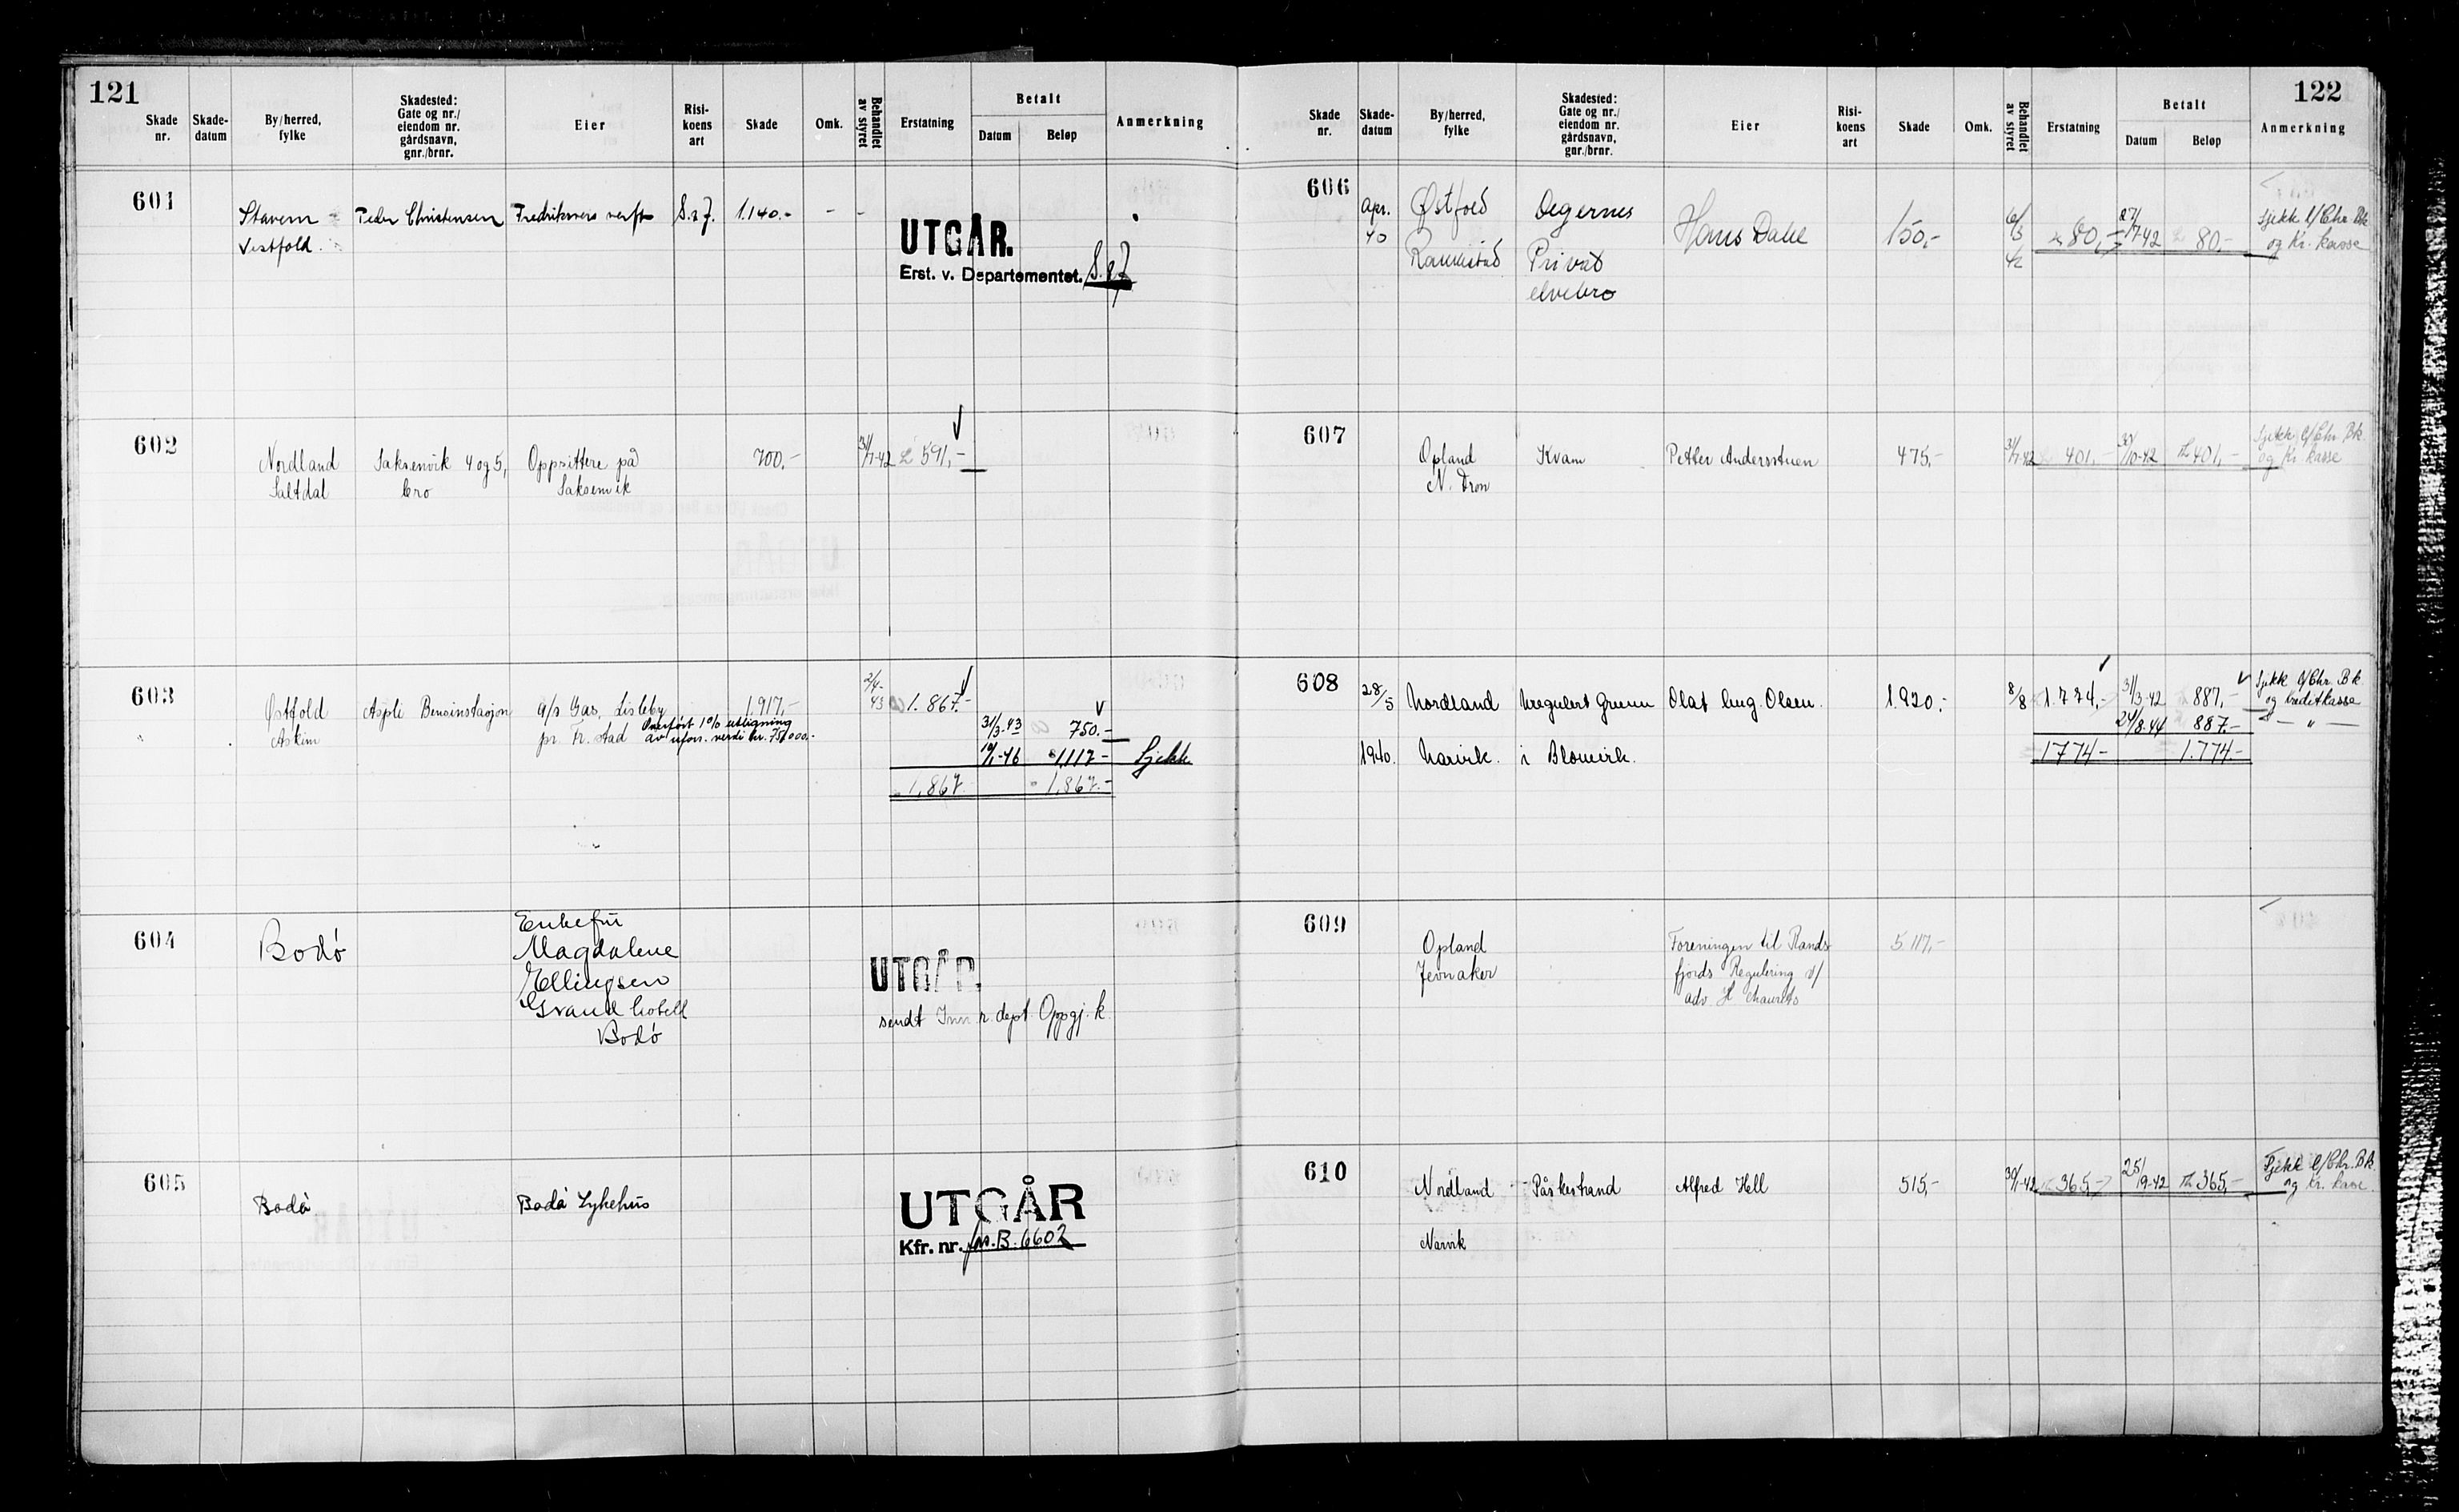 121
Skade nr.
Skade-datum
By/herred, fylke
Skadested: Gate og nr./ eiendom nr. gårdsnavn, gnr./brnr.
Eier
Risi-koens art
Skade
Omk.
Behandlet av styret
Erstatning
Betalt
Datum
Beløp
Anmerkning
601
Stavern Peder Christensen Fredriksvern verft S.s.f. 1.140.- - -
Vestfold.
UTGÅR.
Erst. v. Departementet.
602
Nordland Saksenvik 4 og 5, Oppsittere på 700.- 31/7-42 591,-
Saltdal bro Saksenvik
603
Østfold Aspli Bensinstasjon A/s Gas, Lisleby 1.917,- 2/4-43 1.867.-
" Askim pr. Fr.stad Overført 1% utligning 31/3-43 750.-
av ufors. verdi kr. 75,000.-
10/1-46 1,117- Sjekk
1,867 1,867.-
604
Bodø
Enkefru
Magdalene
Ellingsen
Grand hotell
Bodø
UTGÅR.
sendt Innr. dept. Oppgj. k.
605
Bodø Bodø Sykehus
UTGÅR
Kfr. nr. B. 6602
122
Skade nr.
Skade-datum
By/herred, fylke
Skadested: Gate og nr./ eiendom nr. gårdsnavn, gnr./brnr.
Eier
Risi-koens art
Skade
Omk.
Behandlet av styret
Erstatning
Betalt
Datum
Beløp
Anmerkning
606
Apr. Østfold Degernes Hans Dahl 150,- 6/5 80,- 27/7-42 80,- Sjekk C/Chr. Bk
40 Rakkestad Privat 42 og Kr. kasse
elvebro
607
Opland Kvam Petter Andersstuen 475,- 31/7-42 401,- /10-42 401,- Sjekk C/Chr. Bk.
N. Fron og Kr kasse
608
28/5 Nordland Uregulert Grunn Olaf Aug. Olsen. 1.920.- 8/8 1.774,- 31/3-42 887,- Sjekk C/Chr. Bk
og kreditkasse
24/8-44 887.- " — " —
1940. Narvik. i Blomvik. 1774- 1.774.-
609
Opland Foreningen til Rands 5.117,-
Jevnaker fjords Regulering v/
adv. H
610
Nordland Påskestrand Alfred Hell 515,- 30/1-42 365,- 25/9-42 365,- Sjekk C/Chr. Bk
og kr. kasse.
Narvik